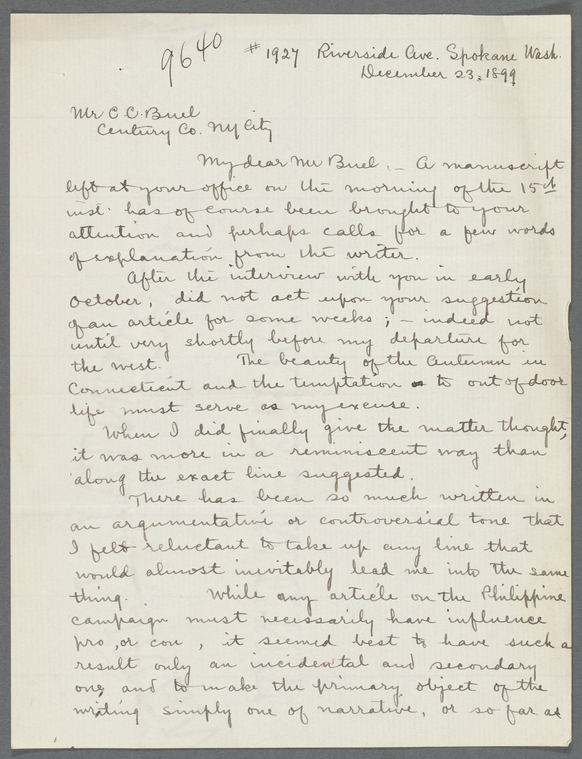 9640
#1927 Riverside Ave. Spokane Wash.
December 23. 1899
Mr C C. Buel
Century Co. NY City
My dear Mr Buel. — A manuscript
left at your office on the morning of the 15th
inst. has of course been brought to your
attention and perhaps calls for a few words
of explanation from the writer.
After the interview with you in early
October, did not act upon your suggestion
of an article for some weeks; — indeed not
until very shortly before my departure for
the west. The beauty of the Autumn in
Connecticut and the temptation to out of door
life must serve as my excuse.
When I did finally give the matter thought,
it was more in a reminiscent way than
along the exact line suggested.
There has been so much written in
an argumentative or controversial tone that
I felt reluctant to take up any line that
would almost inevitably lead me into the same
thing. While any article on the Philippine
campaign must necessarily have influence
pro, or con, it seemed best to have such a
result only an incidental and secondary
one, and to make the primary object of the
writing simply one of narrative, or so far as